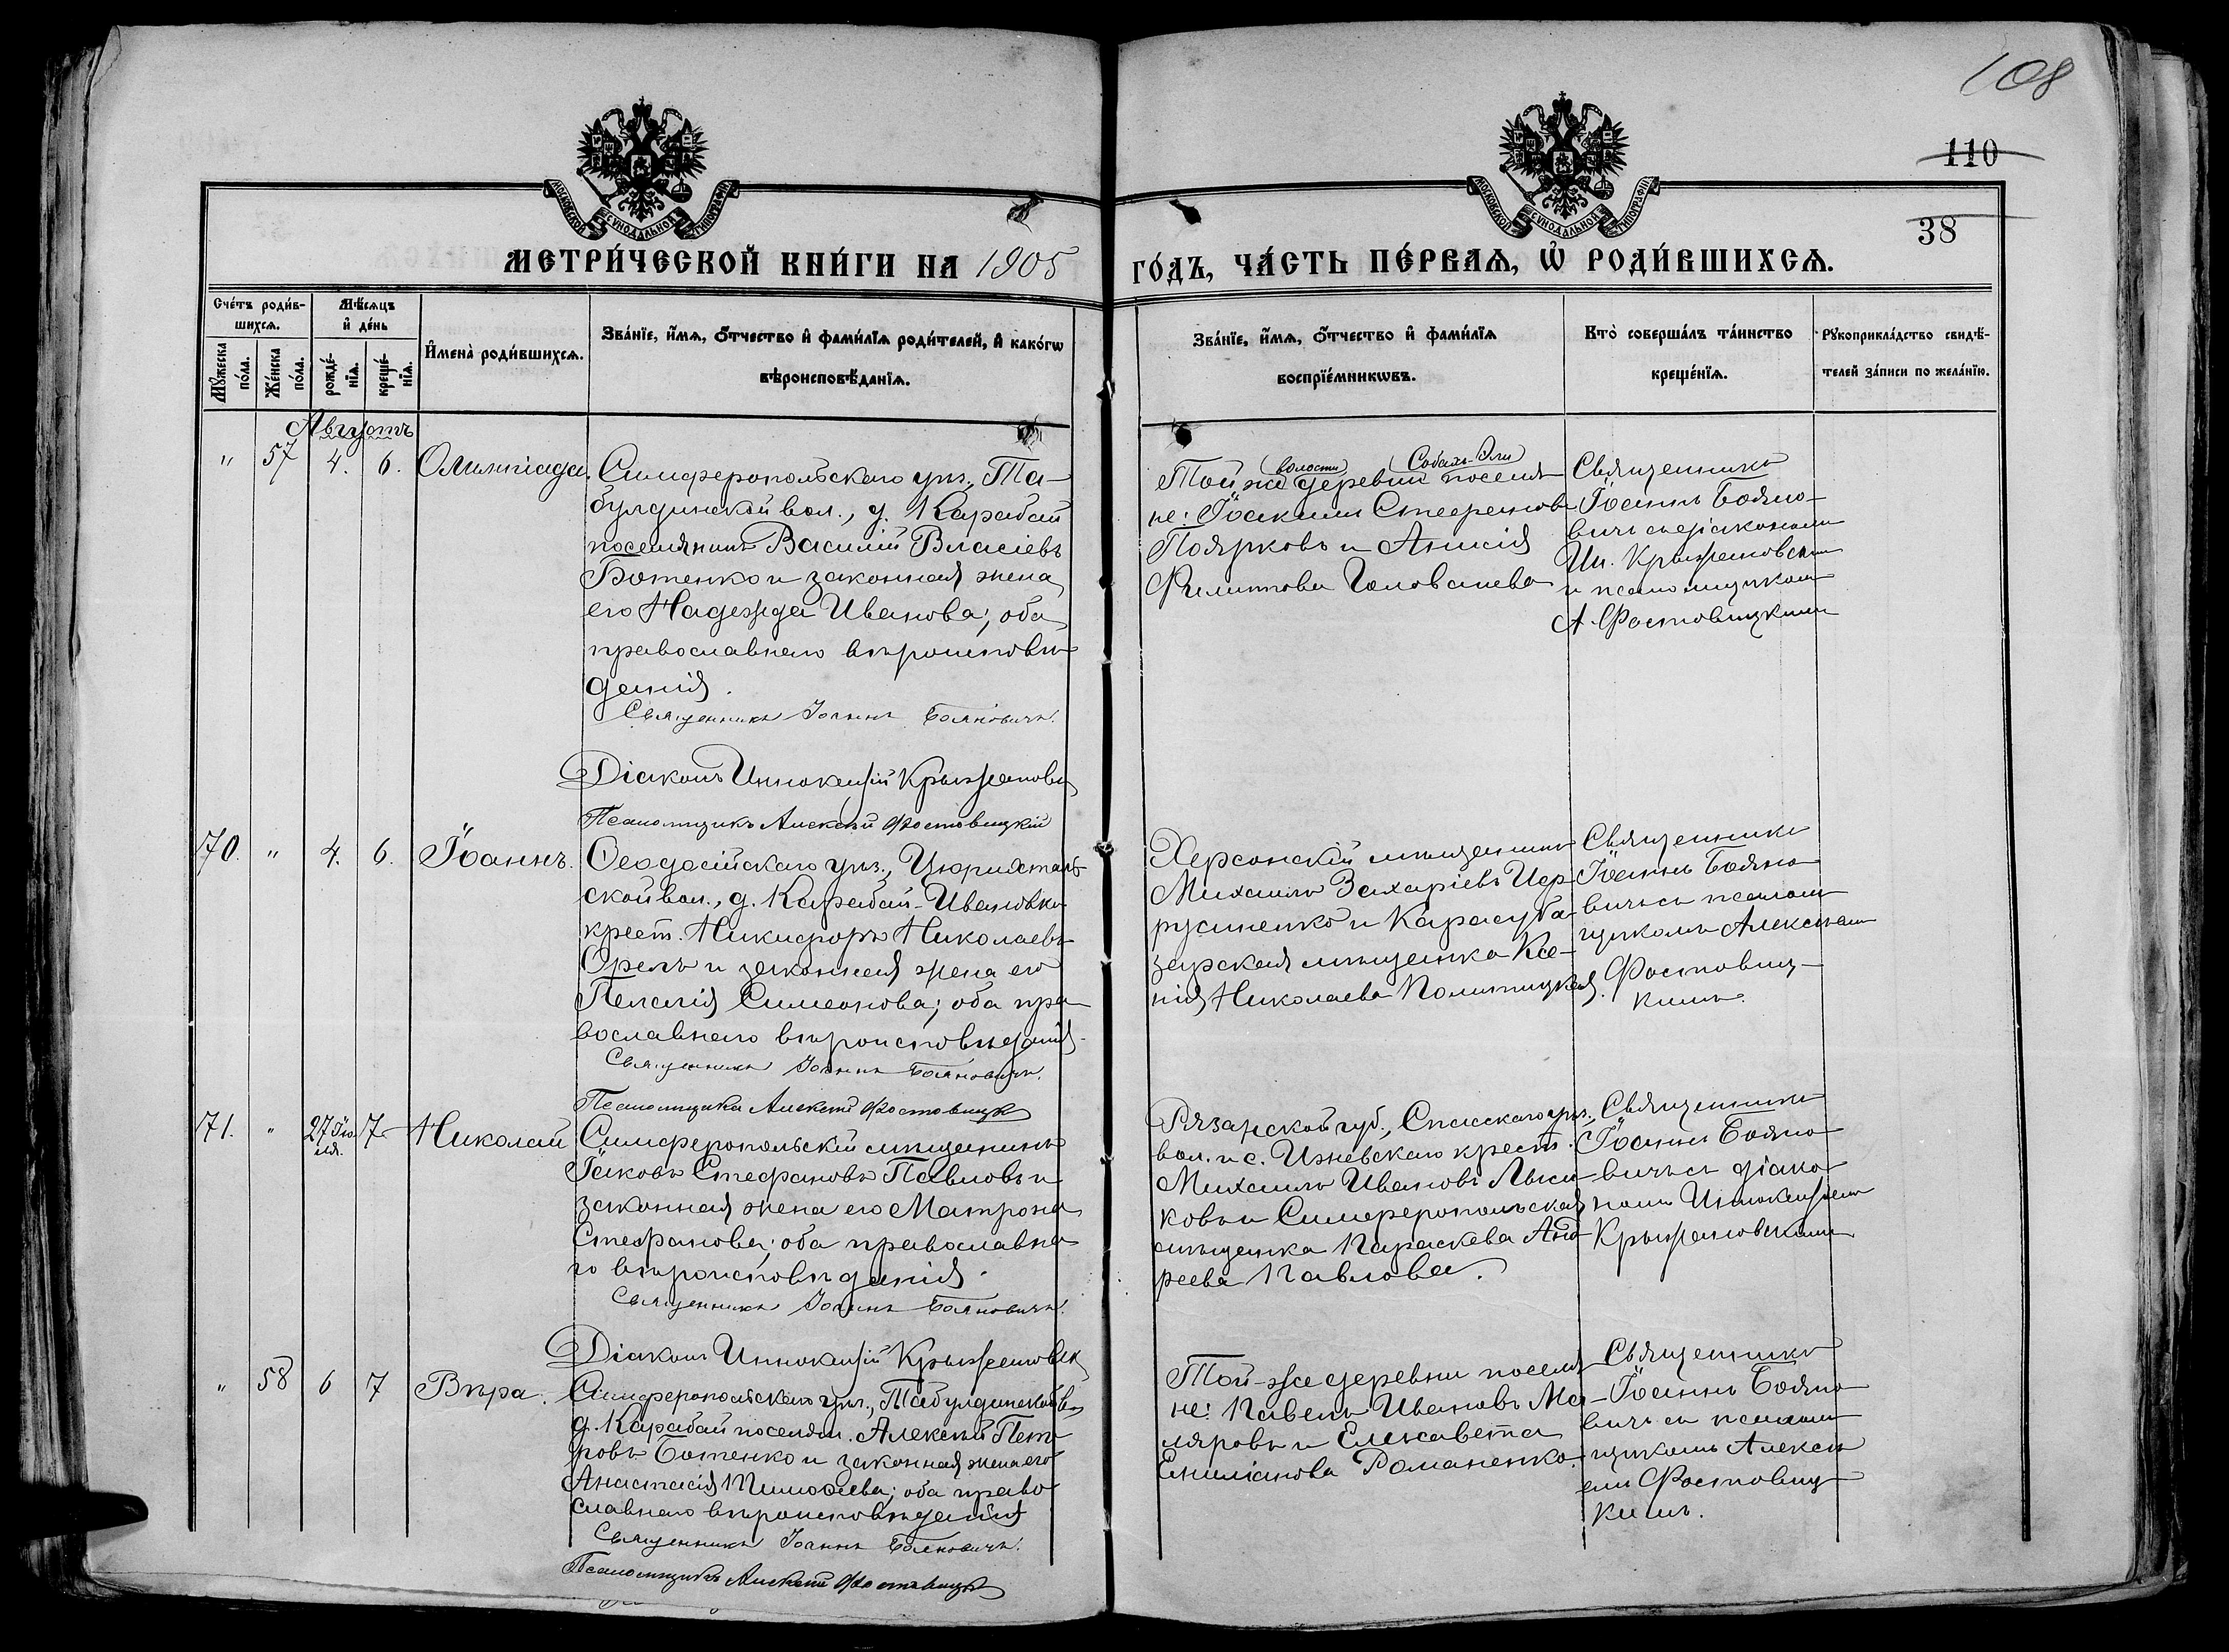 108
110
38
МОСКОВСКОЙ СѴНОДАЛЬНОЙ ТИПОГРАФІИ
МОСКОВСКОЙ СѴНОДАЛЬНОЙ ТИПОГРАФІИ
МЕТРИ́ЧЕСКОЙ КНИ́ГИ НА 1905
ГО́ДЪ, ЧА́СТЬ ПЕ́РВАѦ, Ѡ҆ РОДИ́ВШИХСѦ.
Сче́тъ роди́в-
шихсѧ.
Мѣ́сѧцъ
и҆ де́нь
Мꙋ́жеска
по́ла.
Же́нска
по́ла.
рожде́-
нїѧ.
креще́-
нїѧ.
И҆мена̀ роди́вшихсѧ.
Зва́нїе, и҆́мѧ, ѻ҆́тчество и҆ фами́лїѧ роди́телей, и҆ како́гѡ
вѣроисповѣ́данїѧ.
Зва́нїе, и҆́мѧ, ѻ҆́тчество и҆ фами́лїѧ
воспрїе́мникѡвъ.
Кто̀ соверша́лъ та́инство
креще́нїѧ.
Рꙋкоприкла́дство свидѣ́-
телей за́писи по жела́нїю.
Августъ
" 57 4. 6. Олимпіада.
Симферопольскаго уѣз., Та-
булдинской вол., д. Карабай
поселянинъ Василій Власіевъ
Ботенко и законная жена
его Надежда Иванова; оба
православнаго вѣроисповѣ-
данія.
Священникъ Іоаннъ Бояновичъ.
Діаконъ Иннокентій Крыжановск
Псаломщикъ Алексѣй Фостовицкій
волости
Той же деревни поселя-
не: Іоакимъ Стефановъ
Поярковъ и Анисія
Филиппова Голованева
Священникъ
Іоаннъ Бояно-
вичъ съ діакономъ
Ин. Крыжановскимъ
и псаломщикомъ
А. Фостовицкимъ
70. " 4. 6. Іоаннъ.
Ѳеодосійскаго уѣз., Цюрихталь-
ской вол., д. Карабай-Ивановка
крест. Никифоръ Николаевъ
Орелъ и законная жена его
Пелагія Симеонова; оба пра-
вославнаго вѣроисповѣданія.
Священникъ Іоаннъ Бояновичъ.
Псаломщикъ Алексѣй Фостовицк
Херсонскій мѣщанинъ
Михаилъ Захаріевъ
и Карасуба-
зарская мѣщанка Ксе-
нія Николаева
Священникъ
Іоаннъ Бояно-
вичъ съ псалом-
щикомъ Алексѣемъ
Фостовиц-
кимъ.
71. " 27 Іюля. 7 Николай
Симферопольскій мѣщанинъ
Іаковъ Стефановъ Павловъ и
законная жена его Матрона
Стефанова; оба православна-
го вѣроисповѣданія.
Священникъ Іоаннъ Бояновичъ.
Діаконъ Иннокентій Крыжановск
Рязанской губ., Спасскаго уѣз.,
вол. и с. Ижевскаго крест.
Михаилъ Ивановъ Лыси-
ковъ и Симферопольская
мѣщанка Параскева Анд-
реева Павлова.
Священникъ
Іоаннъ Бояно-
вичъ съ діако-
номъ Иннокентіемъ
Крыжановскимъ
" 58 6 7 Вѣра.
Симферопольскаго уѣз., Табулдинской в.
д. Карабай поселян. Алексѣй Пет-
ровъ Ботенко и законная жена его
Анастасія Тимоѳеева; оба право-
славнаго вѣроисповѣданія
Священникъ Іоаннъ Бояновичъ.
Псаломщикъ Алексѣй Фостовицк
Той-же деревни поселя-
не: Павелъ Ивановъ Ма-
ляровъ и Елисавета
Емиліанова Романенко.
Священникъ
Іоаннъ Бояно-
вичъ съ псалом-
щикомъ Алексѣ-
емъ Фостовиц-
кимъ.